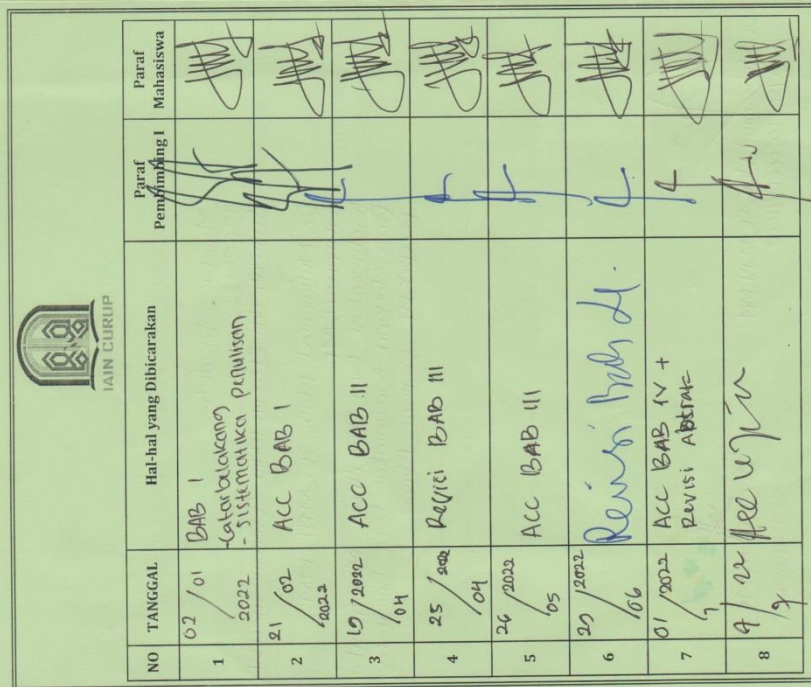 IAIN CURUP
NO TANGGAL Hal-hal yang Dibicarakan Paraf Pembimbing I Paraf Mahasiswa
1 02/01 2022 BAB I
- Latarbelakang
- Sistematika penulisan
2 21/02 2022 ACC BAB I
3 19/2022 04 ACC BAB II
4 25/04 Revisi BAB III
5 26/2022 05 ACC BAB III
6 29/2022 06 Revisi Bab
7 01/2022 7 ACC BAB IV +
Revisi Abstrak
8 Acc Ujian